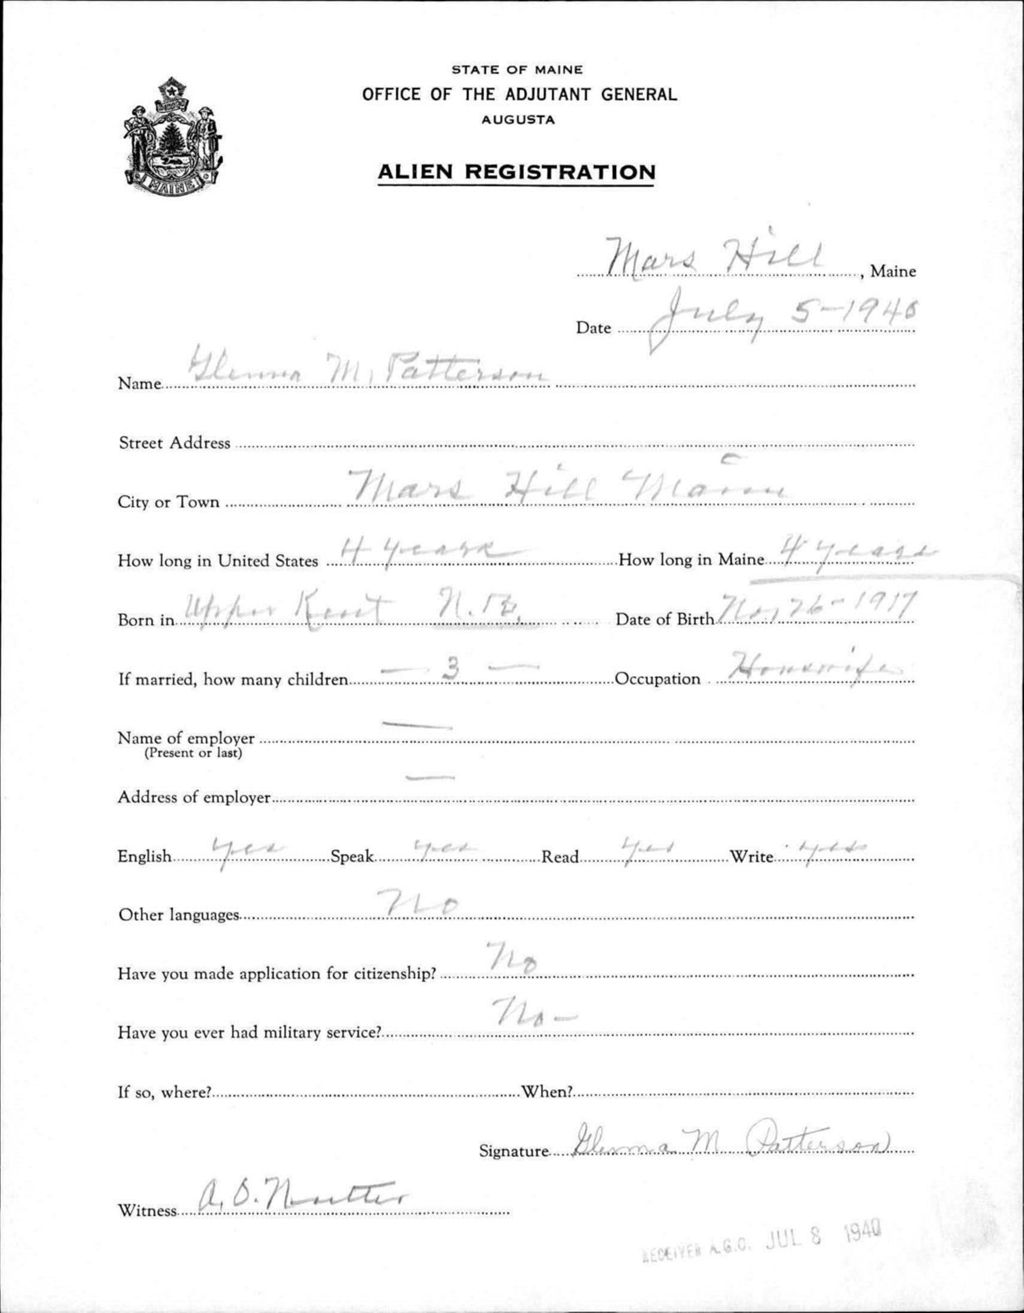 STATE OF MAINE
OFFICE OF THE ADJUTANT GENERAL
AUGUSTA
ALIEN REGISTRATION
MAINE
Mars Hill, Maine
Date July 5-1940
Name Glenna M. Patterson
Street Address
City or Town Mars Hill Maine
How long in United States 4 years How long in Maine 4 years
Born in Upper Kent N.B. Date of Birth Nov 26-1917
If married, how many children — 3 — Occupation Housewife
Name of employer —
(Present or last)
Address of employer —
English yes Speak yes Read yes Write yes
Other languages No
Have you made application for citizenship? No
Have you ever had military service? No —
If so, where? When?
Signature Glenna M Patterson
Witness A. O. Nutter
RECEIVED A.G.O. JUL 8 1940